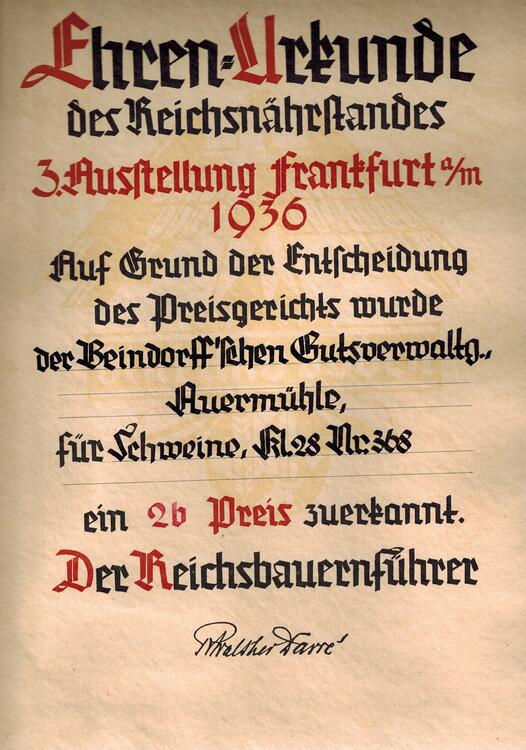 Ehren-Urkunde
des Reichsnährstandes
3. Ausstellung Frankfurt a/m
1936
Auf Grund der Entscheidung
des Preisgerichts wurde
der Beindorff'schen Gutsverwaltg.,
Auermühle,
für Schweine, Kl. 28 Nr. 368
ein 2b Preis zuerkannt.
Der Reichsbauernführer
R Walther Darré